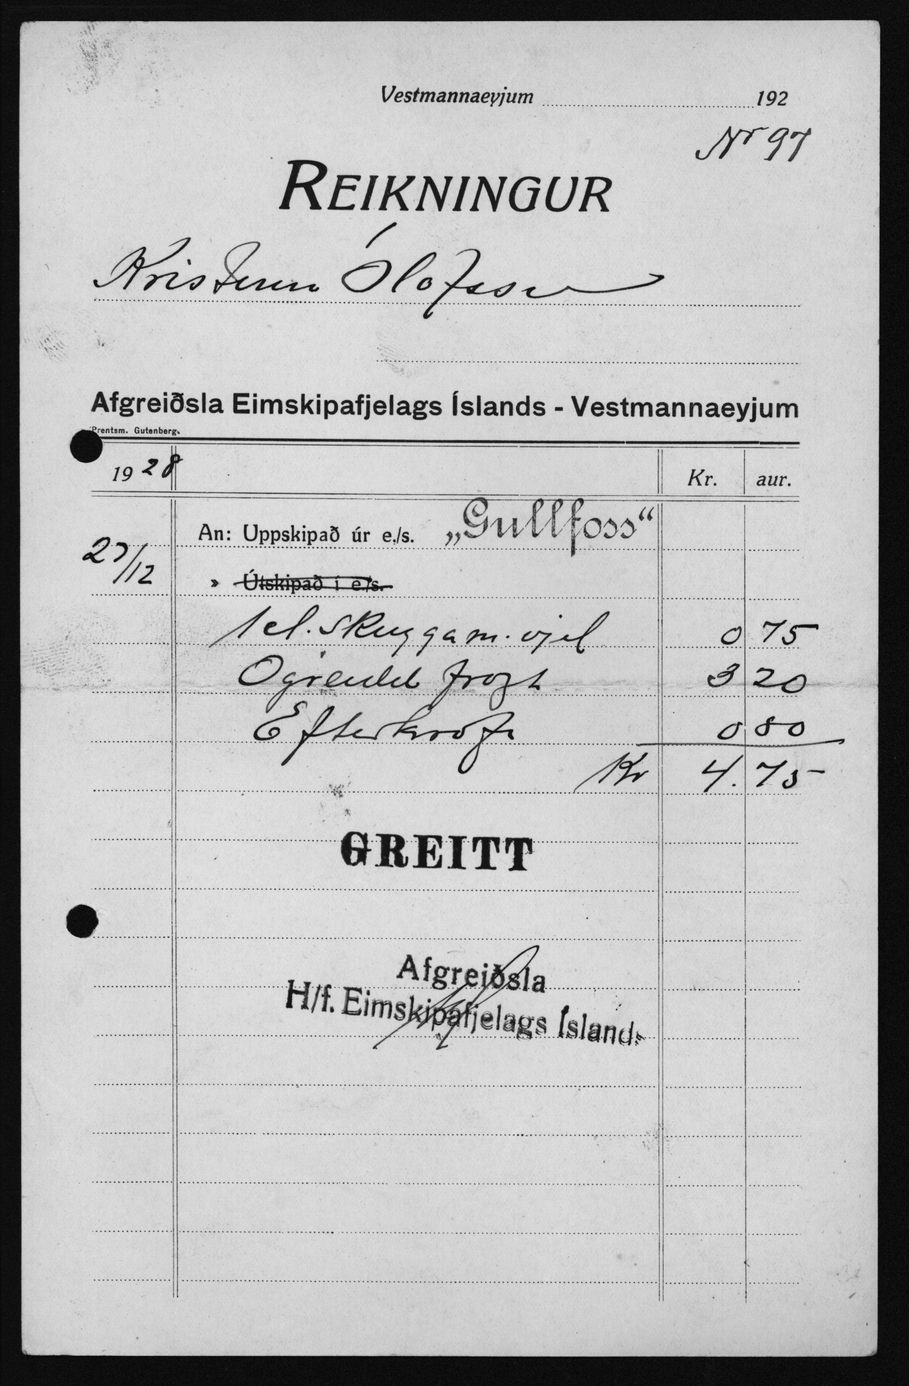 Vestmannaeyjum 192
Nr 97
REIKNINGUR
Kristinn Ólafsson
Afgreiðsla Eimskipafjelags Íslands - Vestmannaeyjum
Prentsm. Gutenberg.
1928 Kr. aur.
An: Uppskipað úr e/s. „Gullfoss“
27/12
» Útskipað í e/s.
1 cl. skuggam. vjel 0 75
Ógreidd fragt 3 20
Eftirkrafa 0 80
Kr 4. 75
GREITT
Afgreiðsla
H/f. Eimskipafjelags Íslands